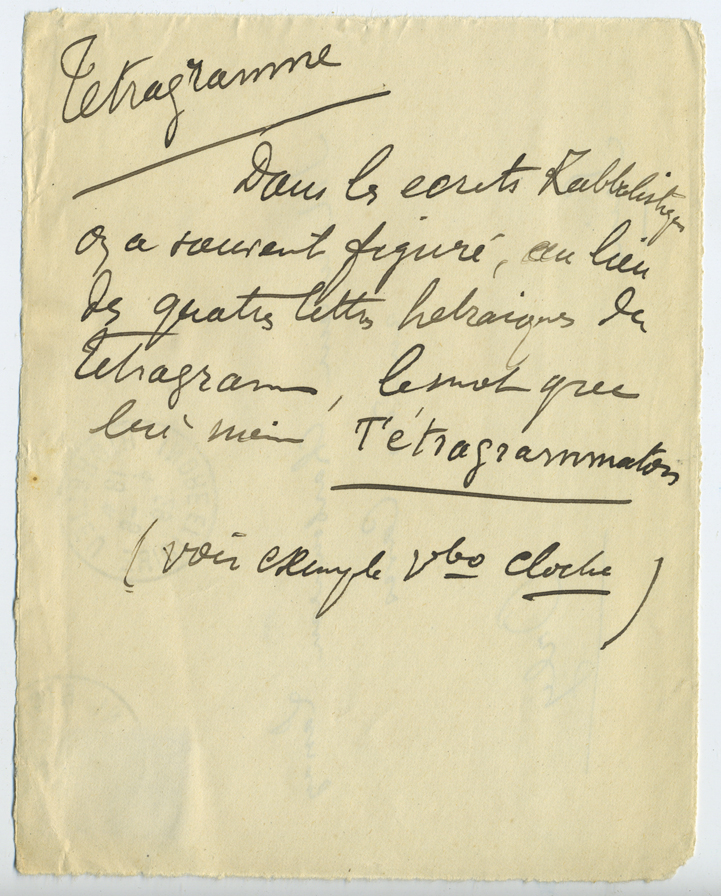 Tétragramme
Dans les écrits Kabbalistiques
on a souvent figuré, au lieu
des quatre lettres hébraïques du
Tétragramme, le mot grec
lui même Tétragrammaton
(voir exemple Vbo cloche)